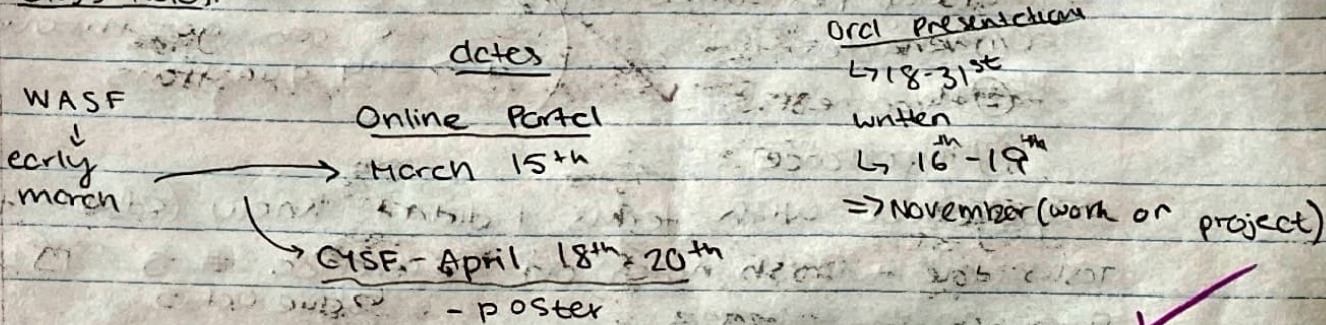 dates
WASF
↓
early
march
Online Portal
→ March 15th
→ CYSF - April 18th - 20th
- poster
Oral presentation
↳ 18-31st
written
↳ 16th - 19th
=> November (work on project)